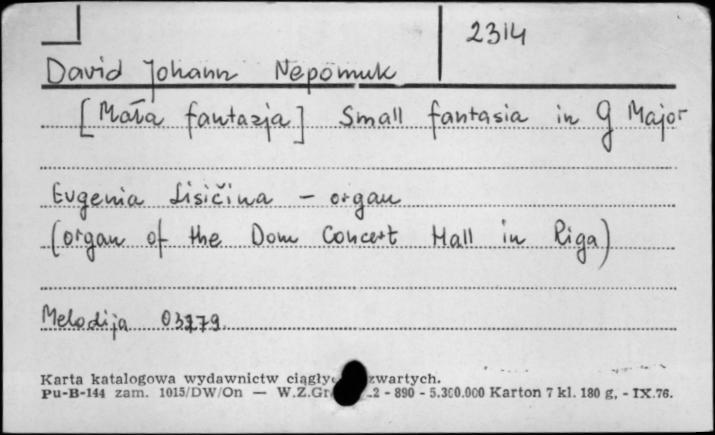 2314
David Johann Nepomuk
[Mała fantazja] Small fantasia in G Major
Eugenia Lisičina - organ
(organ of the Dom Concert Hall in Riga)
Melodija 03179
Karta katalogowa wydawnictw zwartych.
Pu-B-144 zam. 1015/DW/On — W.Z.Gr - 890 - 5.300.000 Karton 7 kl. 180 g, - IX.76.